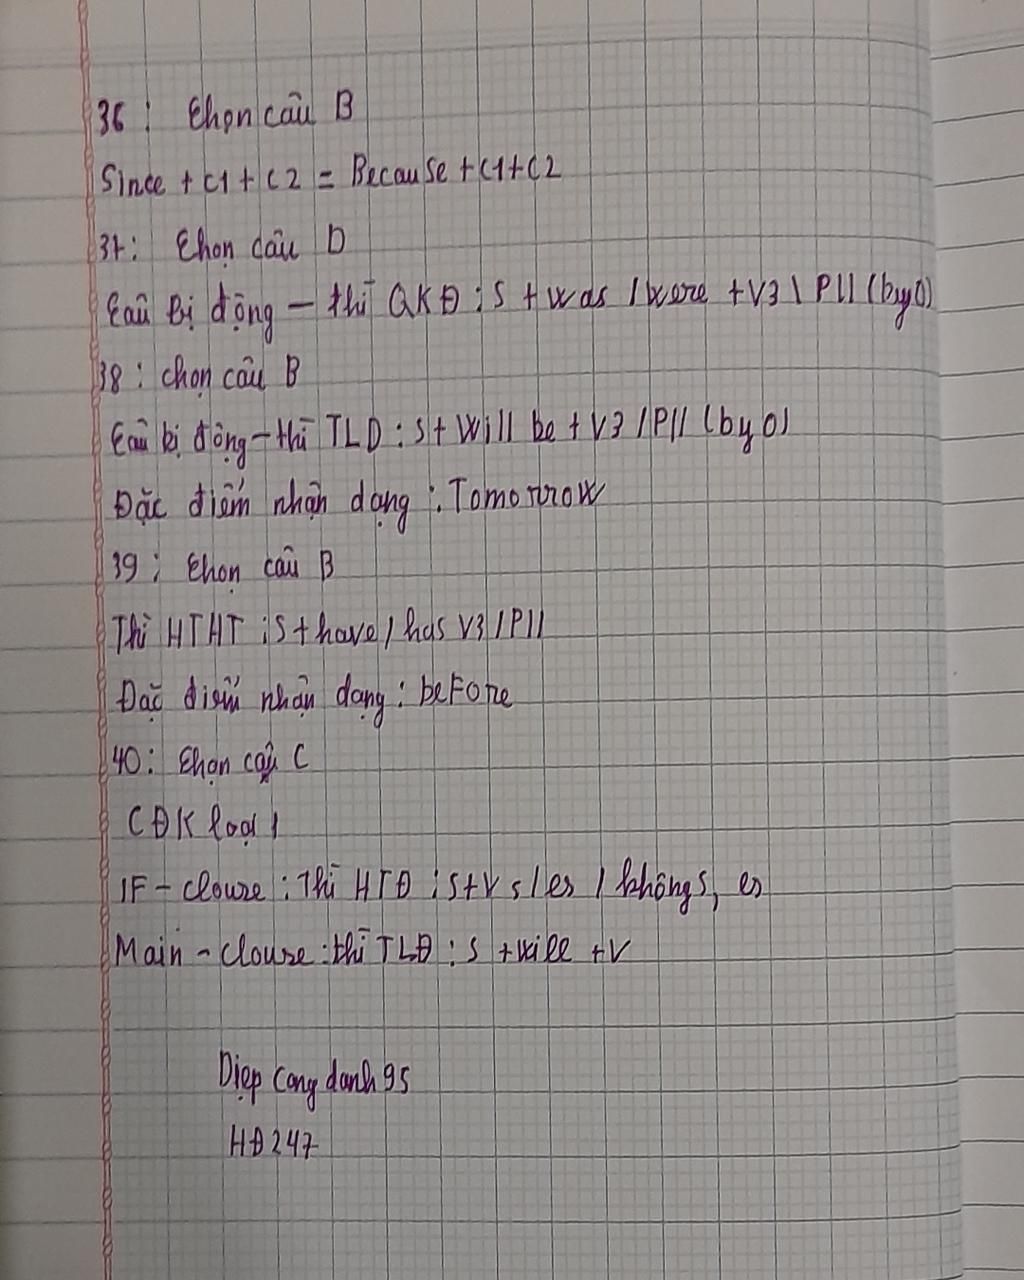 36 : Chọn câu B
Since + C1 + C2 = Because + C1 + C2
37 : Chọn câu D
Câu Bị động - thì QKĐ : S + was / were + V3 \ PII (by O)
38 : chọn câu B
Câu bị động - thì TLD : S + will be + V3 / PII (by O)
Đặc điểm nhận dạng : Tomorrow
39 : Chọn câu B
Thì HTHT : S + have / has V3 / PII
Đặc điểm nhận dạng : beFore
40 : Chọn câu C
CĐK loại 1
IF - clouse : Thì HTĐ : S + V s / es / không s, es
Main - clouse : thì TLĐ : S + will + V
Diệp Cong danh 95
HĐ247